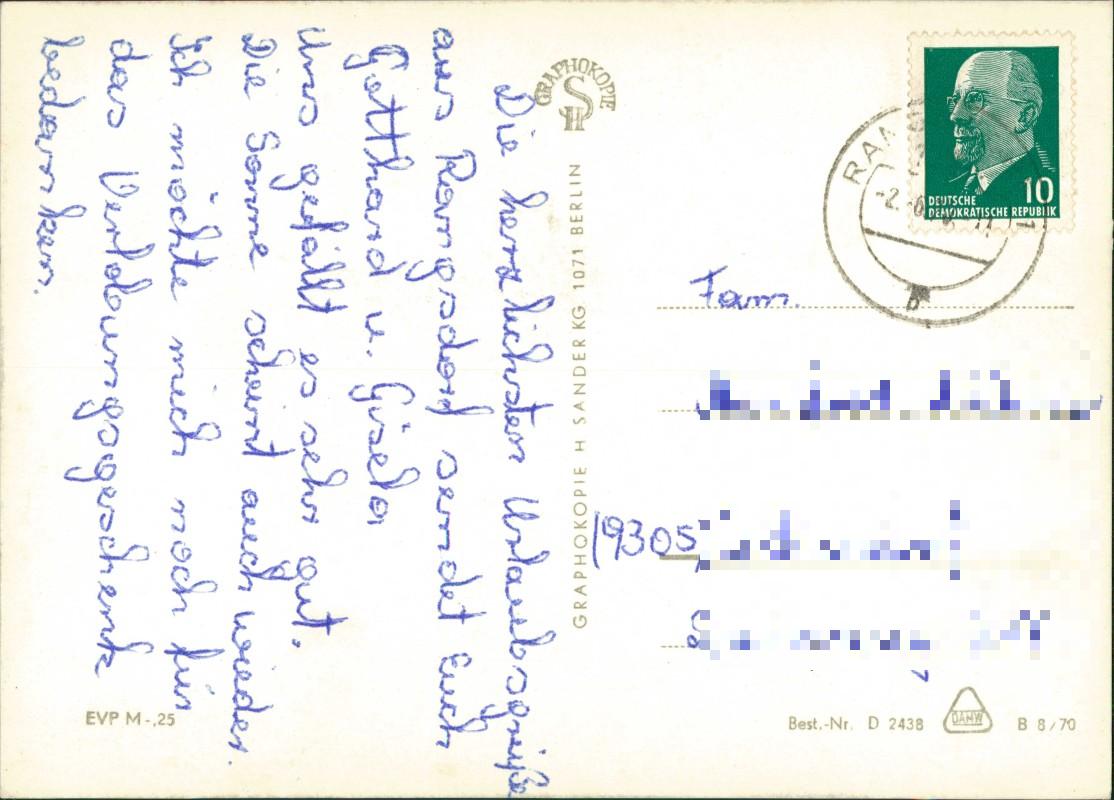 Die herzlichsten Urlaubsgrüße
aus Rangsdorf sendet Euch
Gotthard u. Gisela
Uns gefällt es sehr gut.
Die Sonne scheint auch wieder.
Ich möchte mich noch für
das Verlobungsgeschenk
bedanken.
EVP M -,25
GRAPHOKOPIE
H S
GRAPHOKOPIE H SANDER KG 1071 BERLIN
10
DEUTSCHE
DEMOKRATISCHE REPUBLIK
Fam.
19305
Best.-Nr. D 2438
DAMW
B 8/70